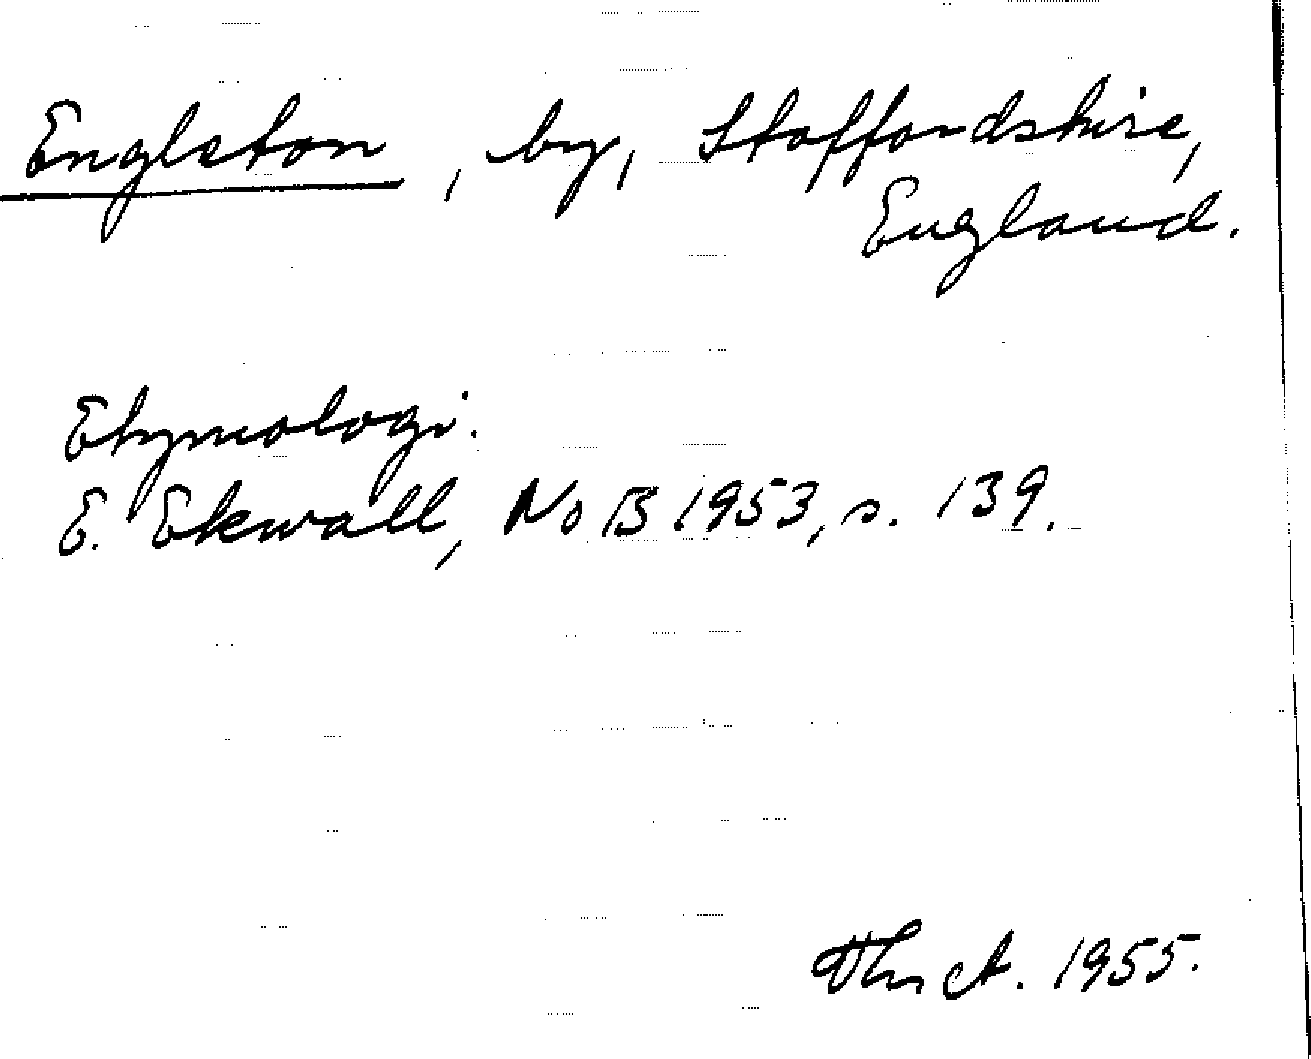 Engleton, by, Staffordshire,
England.
Etymologi.
E. Ekwall, NoB 1953, s. 139.
1955.